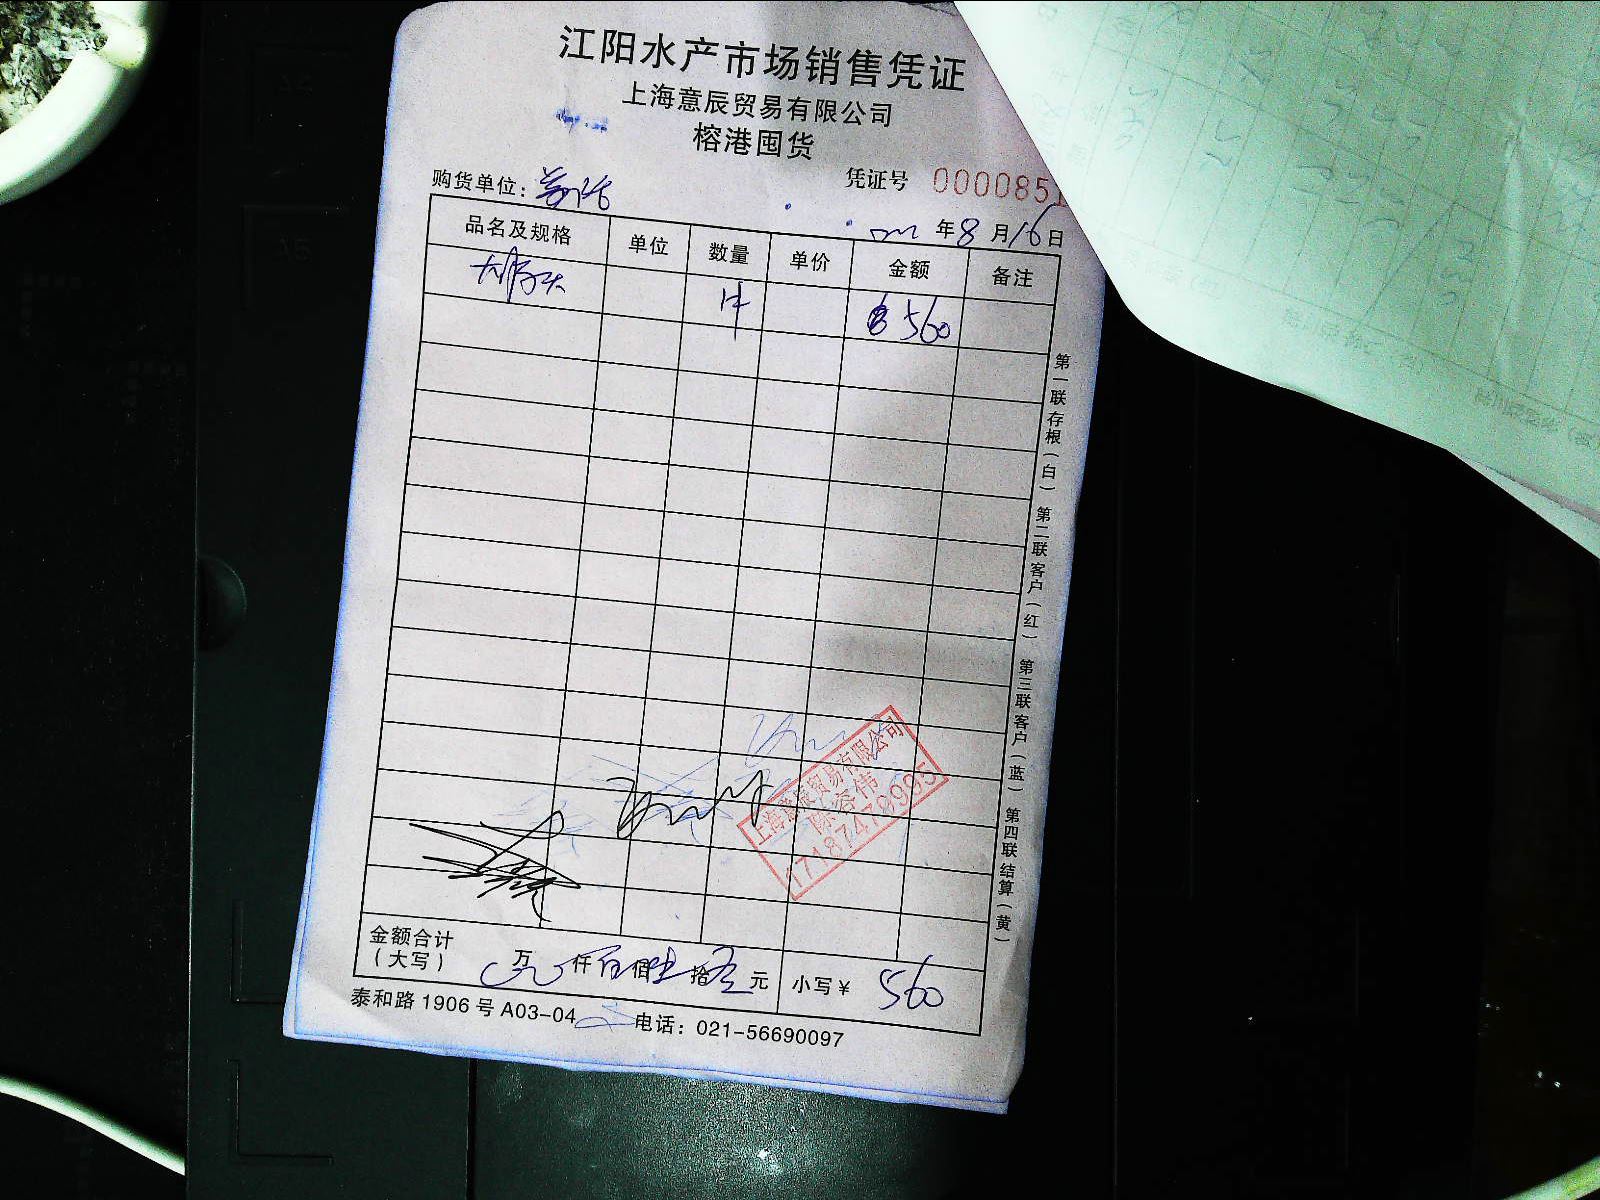 江阳水产市场销售凭证
上海意辰贸易有限公司
榕港囤货
购货单位:
凭证号 0000851
年8月16日
品名及规格 单位 数量 单价 金额 备注
560
第一联存根(白) 第二联客户(红) 第三联客户(蓝) 第四联结算(黄)
上海意辰贸易有限公司
17187479995
金额合计
(大写) 万 仟 佰 拾 元 小写¥ 560
泰和路1906号A03-04 电话:021-56690097